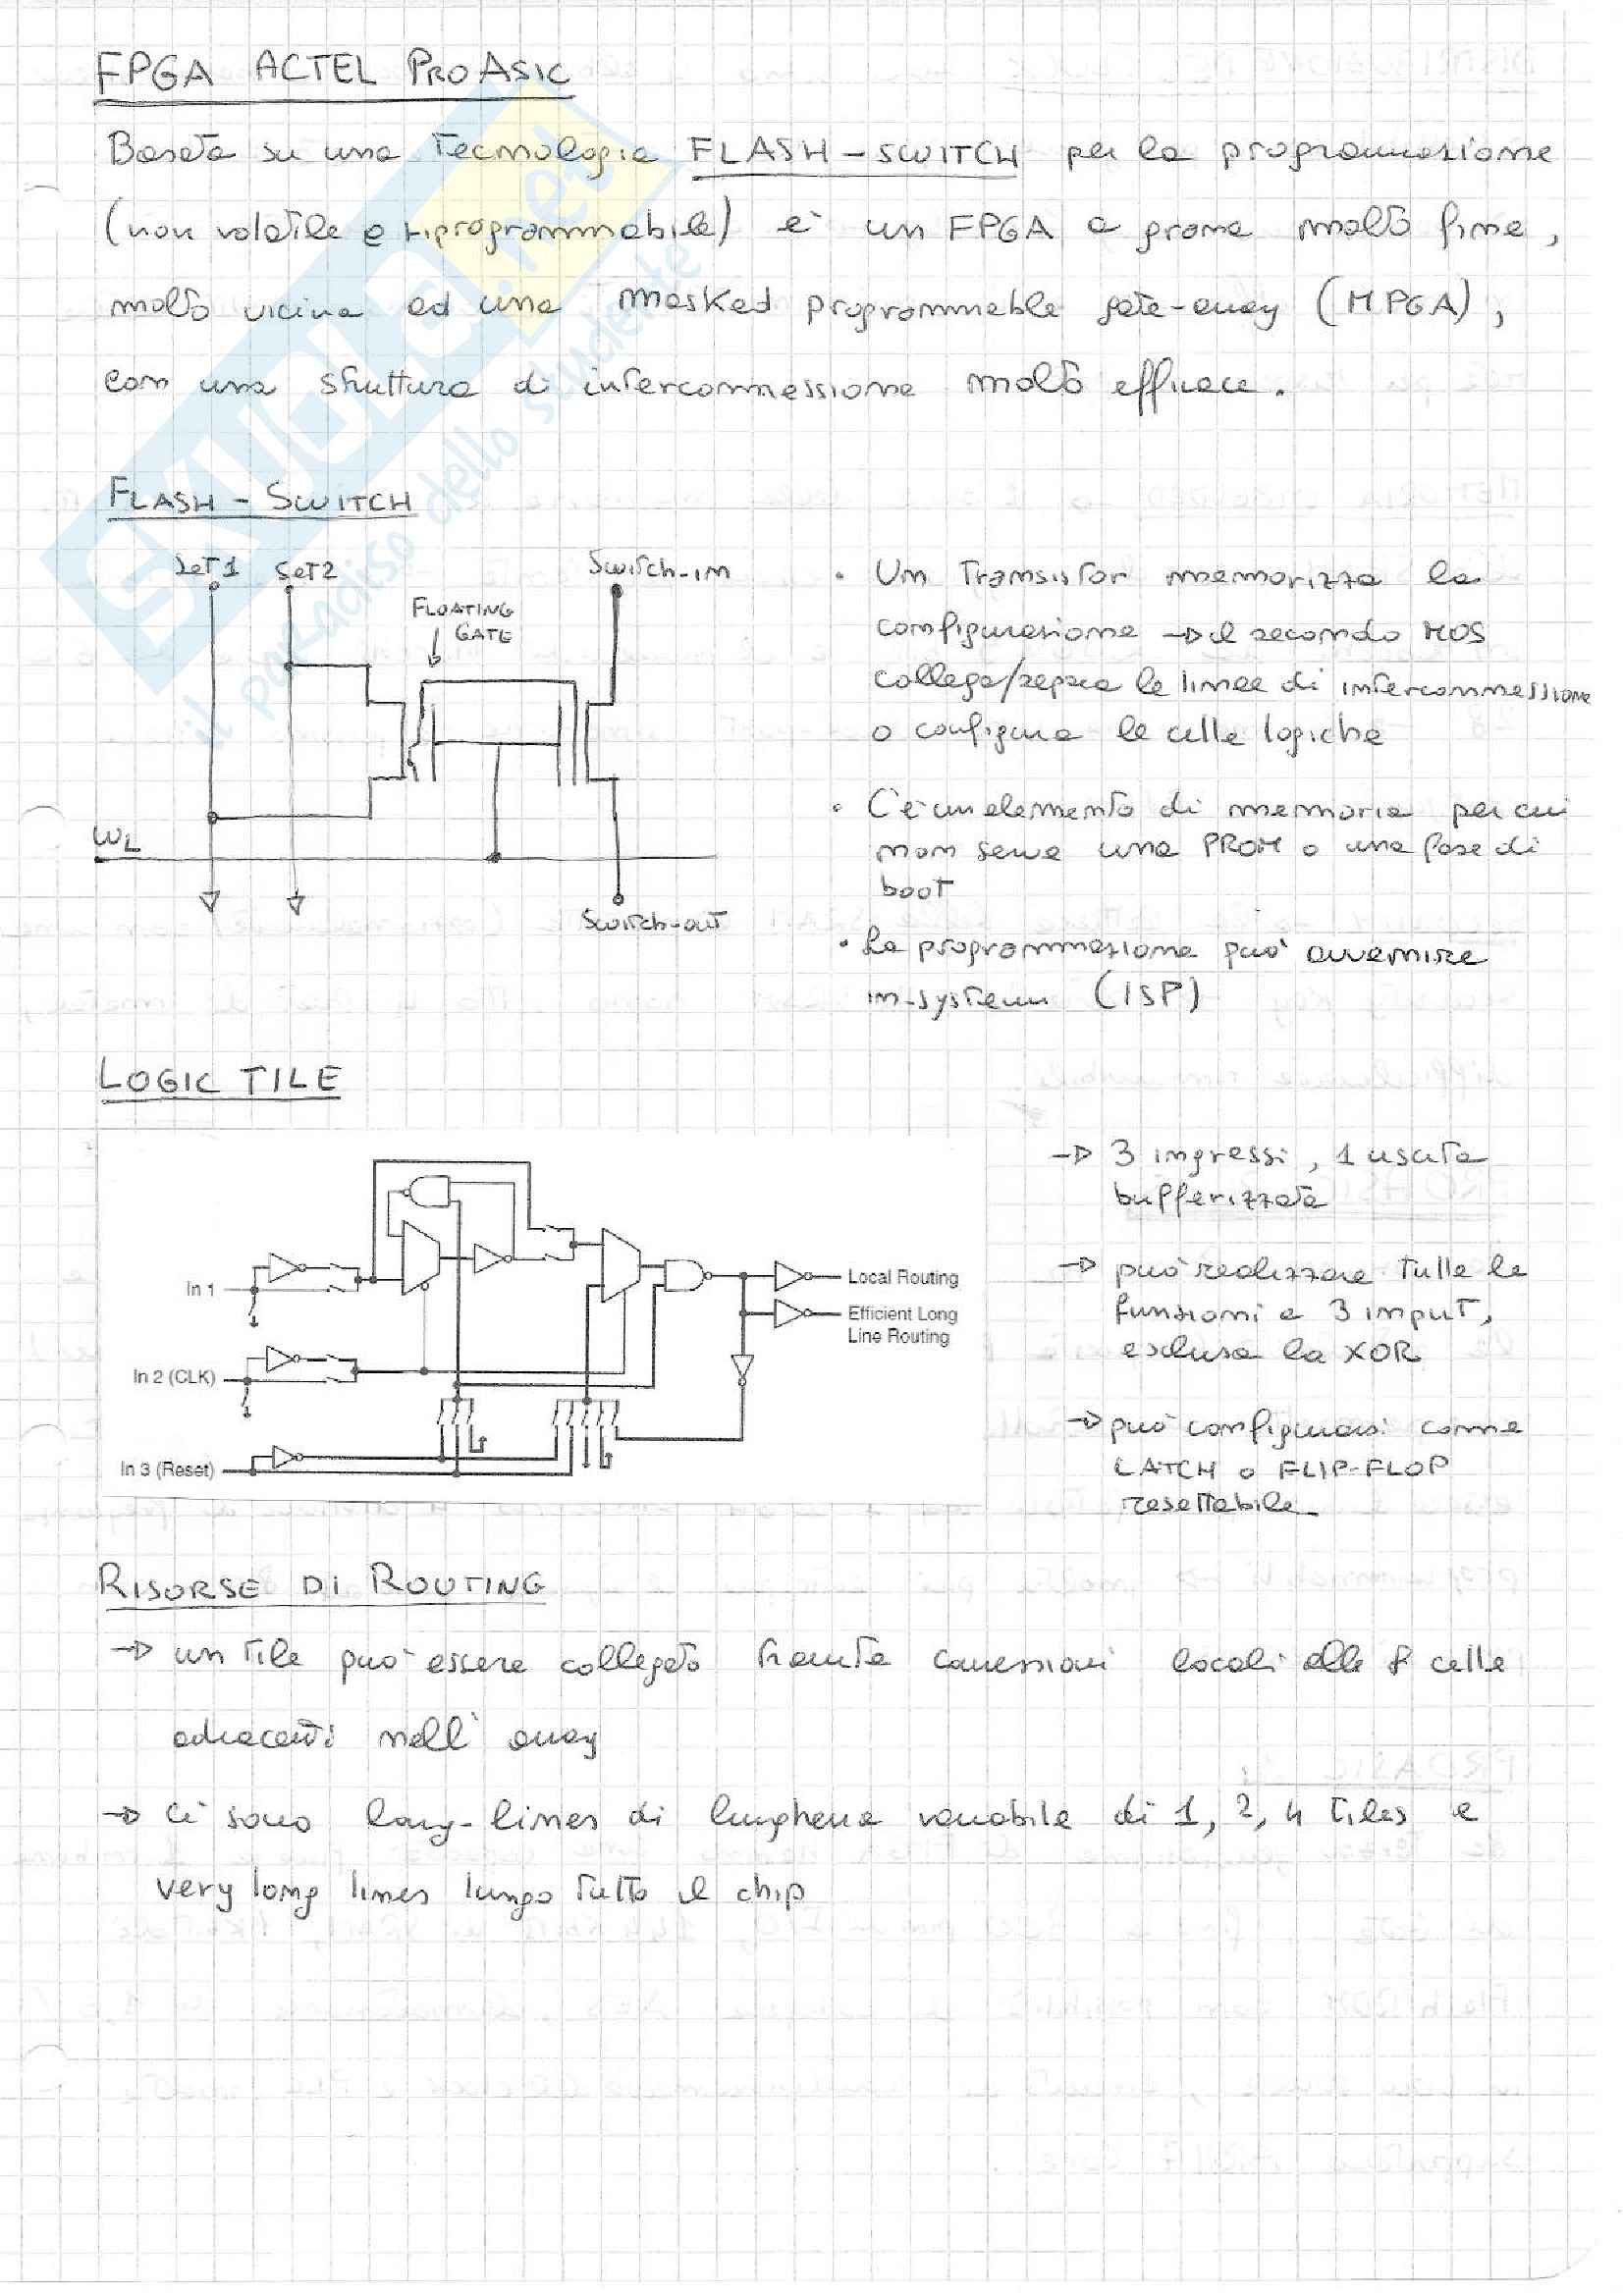 FPGA ACTEL PROASIC
Basata su una tecnologia FLASH-SWITCH per la programmazione
(non volatile e riprogrammabile) è un FPGA a grana molto fine,
molto vicina ad una masked programmable gate-array (MPGA),
con una struttura di interconnessione molto efficace.
FLASH - SWITCH
Set1 Set2 Switch-in
FLOATING
GATE
WL
Switch-out
• Un transistor memorizza la
configurazione → il secondo MOS
collega/separa le linee di interconnessione
o configura le celle logiche
• C'è un elemento di memoria per cui
non serve una PROM o una fase di
boot
• La programmazione può avvenire
in-system (ISP)
LOGIC TILE
In 1
In 2 (CLK)
In 3 (Reset)
Local Routing
Efficient Long
Line Routing
→ 3 ingressi, 1 uscita
bufferizzata
→ può realizzare tutte le
funzioni a 3 input,
esclusa la XOR
→ può configurarsi come
LATCH o FLIP-FLOP
resettabile
RISORSE DI ROUTING
→ un tile può essere collegato tramite connessioni locali alle 8 celle
adiacenti nell'array
→ ci sono long-lines di lunghezza variabile di 1, 2, 4 tiles e
very long lines lungo tutto il chip
SKUOLA.net
il paradiso dello studente